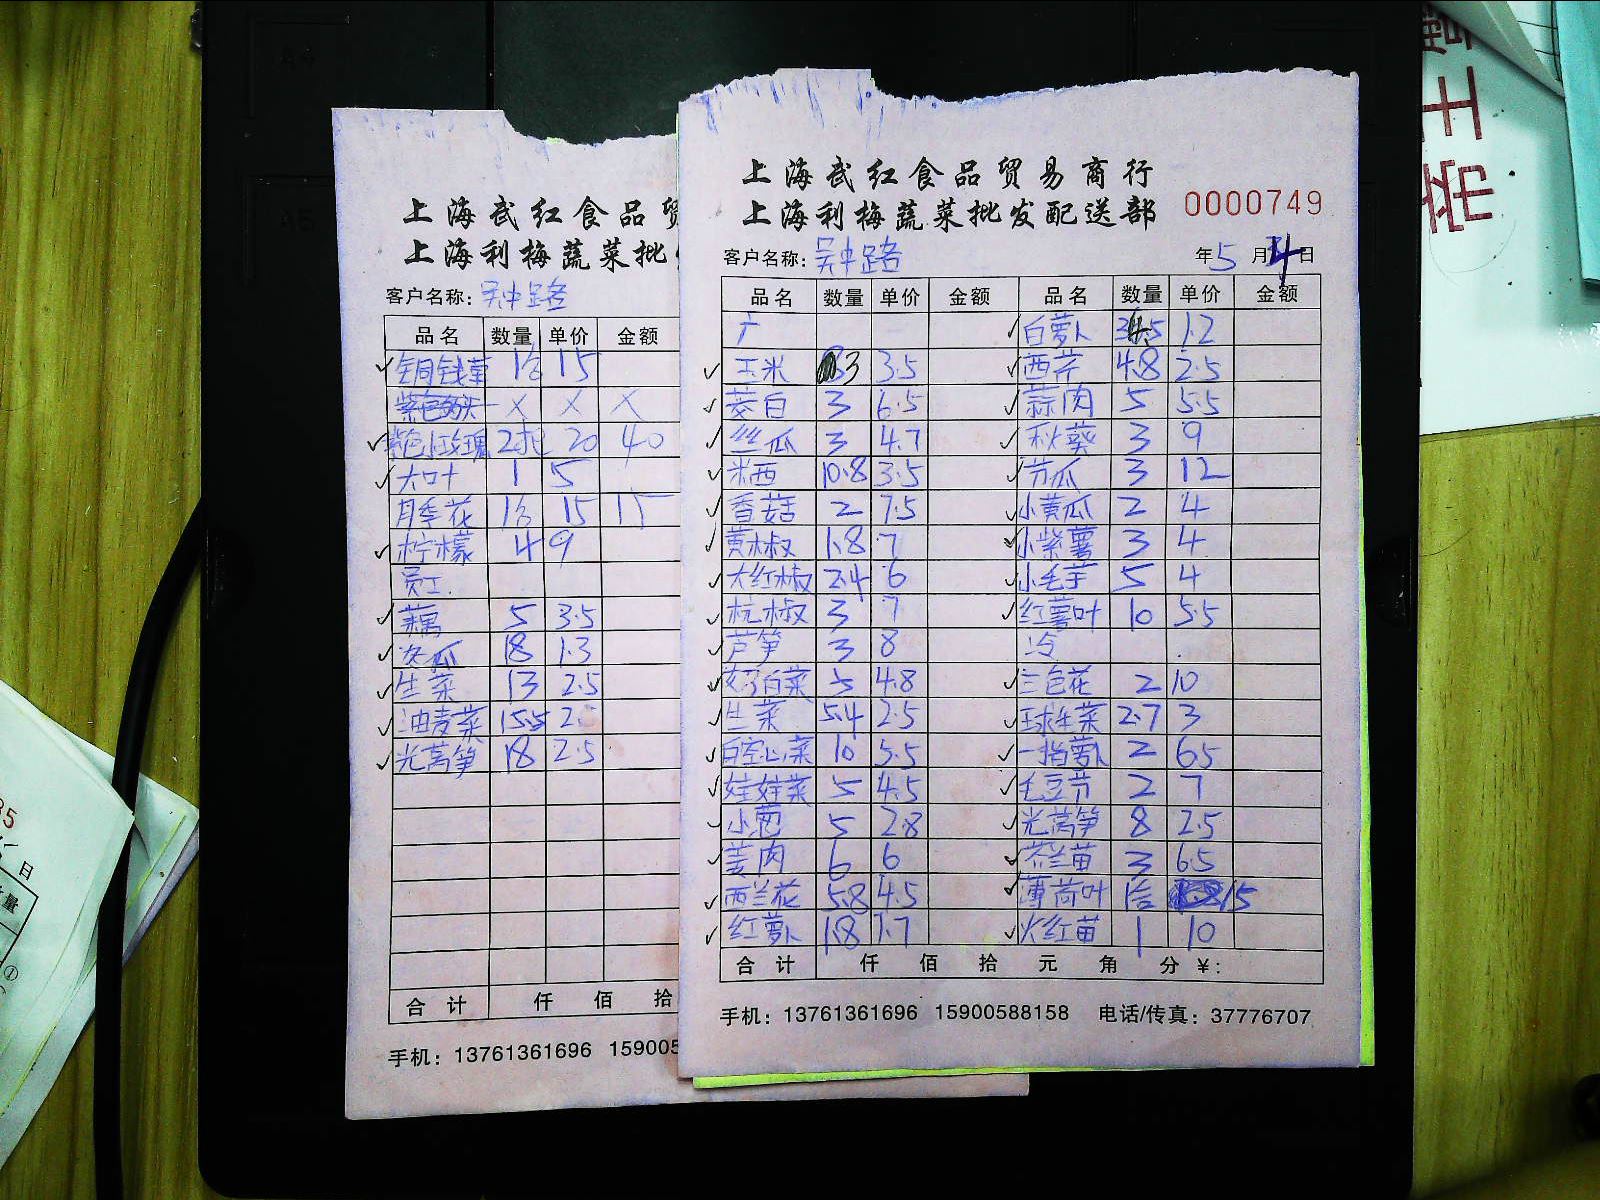 上海武红食品贸
上海利梅蔬菜批
客户名称: 吴中路
品名 数量 单价 金额
铜钱草 1盒 15
× × ×
20 40
大叶 1 5
月季花 1盒 15 15
柠檬 4 9
员工
藕 5 3.5
冬瓜 18 1.3
生菜 13 2.5
油麦菜 15.5
光莴笋 18 2.5
合计 仟 佰 拾
手机: 13761361696 159005
上海武红食品贸易商行
上海利梅蔬菜批发配送部
0000749
客户名称: 吴中路 年5月4日
品名 数量 单价 金额 品名 数量 单价 金额
白萝卜 1.2
玉米 3 3.5 西芹 4.8 2.5
茭白 3 6.5 蒜肉 5 5.5
丝瓜 3 4.7 秋葵 3 9
米西 10.8 3.5 节瓜 3 12
香菇 2 7.5 小黄瓜 2 4
黄椒 1.8 7 小紫薯 3 4
大红椒 2.4 6 小毛芋 5 4
杭椒 3 7 红薯叶 10 5.5
芦笋 3 8 冷
奶白菜 5 4.8 三色花 2 10
生菜 5.4 2.5 球生菜 2.7 3
白空心菜 10 5.5 一指萝卜 2 65
娃娃菜 5 4.5 毛豆节 2 7
小葱 5 2.8 光莴笋 8 2.5
姜肉 6 6 芥兰苗 3 6.5
西兰花 5.8 4.5 薄荷叶 1盒 15
红萝卜 1.8 1.7 火红苗 1 10
合计 仟 佰 拾 元 角 分 ¥:
手机: 13761361696 15900588158 电话/传真: 37776707
帝王
35
日
量